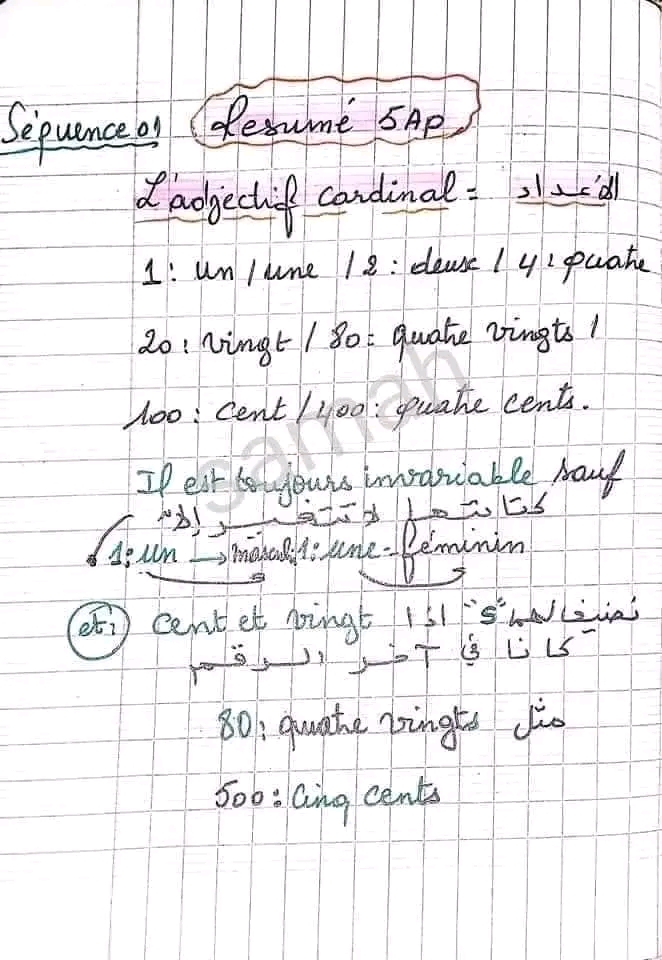 Séquence 01 Resumé 5AP
L'adjectif cardinal = الأعداد
1: un / une / 2 : deux / 4 : quatre
20 : vingt / 80 = quatre vingts /
100 : cent / 400 : quatre cents.
Il est toujours invariable sauf
كتابتها لا تتغير إلا
1: un → mascul; 1: une - féminin
et: cent et vingt نضيف لهما "s" اذا
كانا في آخر الرقم
80: quatre vingts مثل
500 : cinq cents
samah